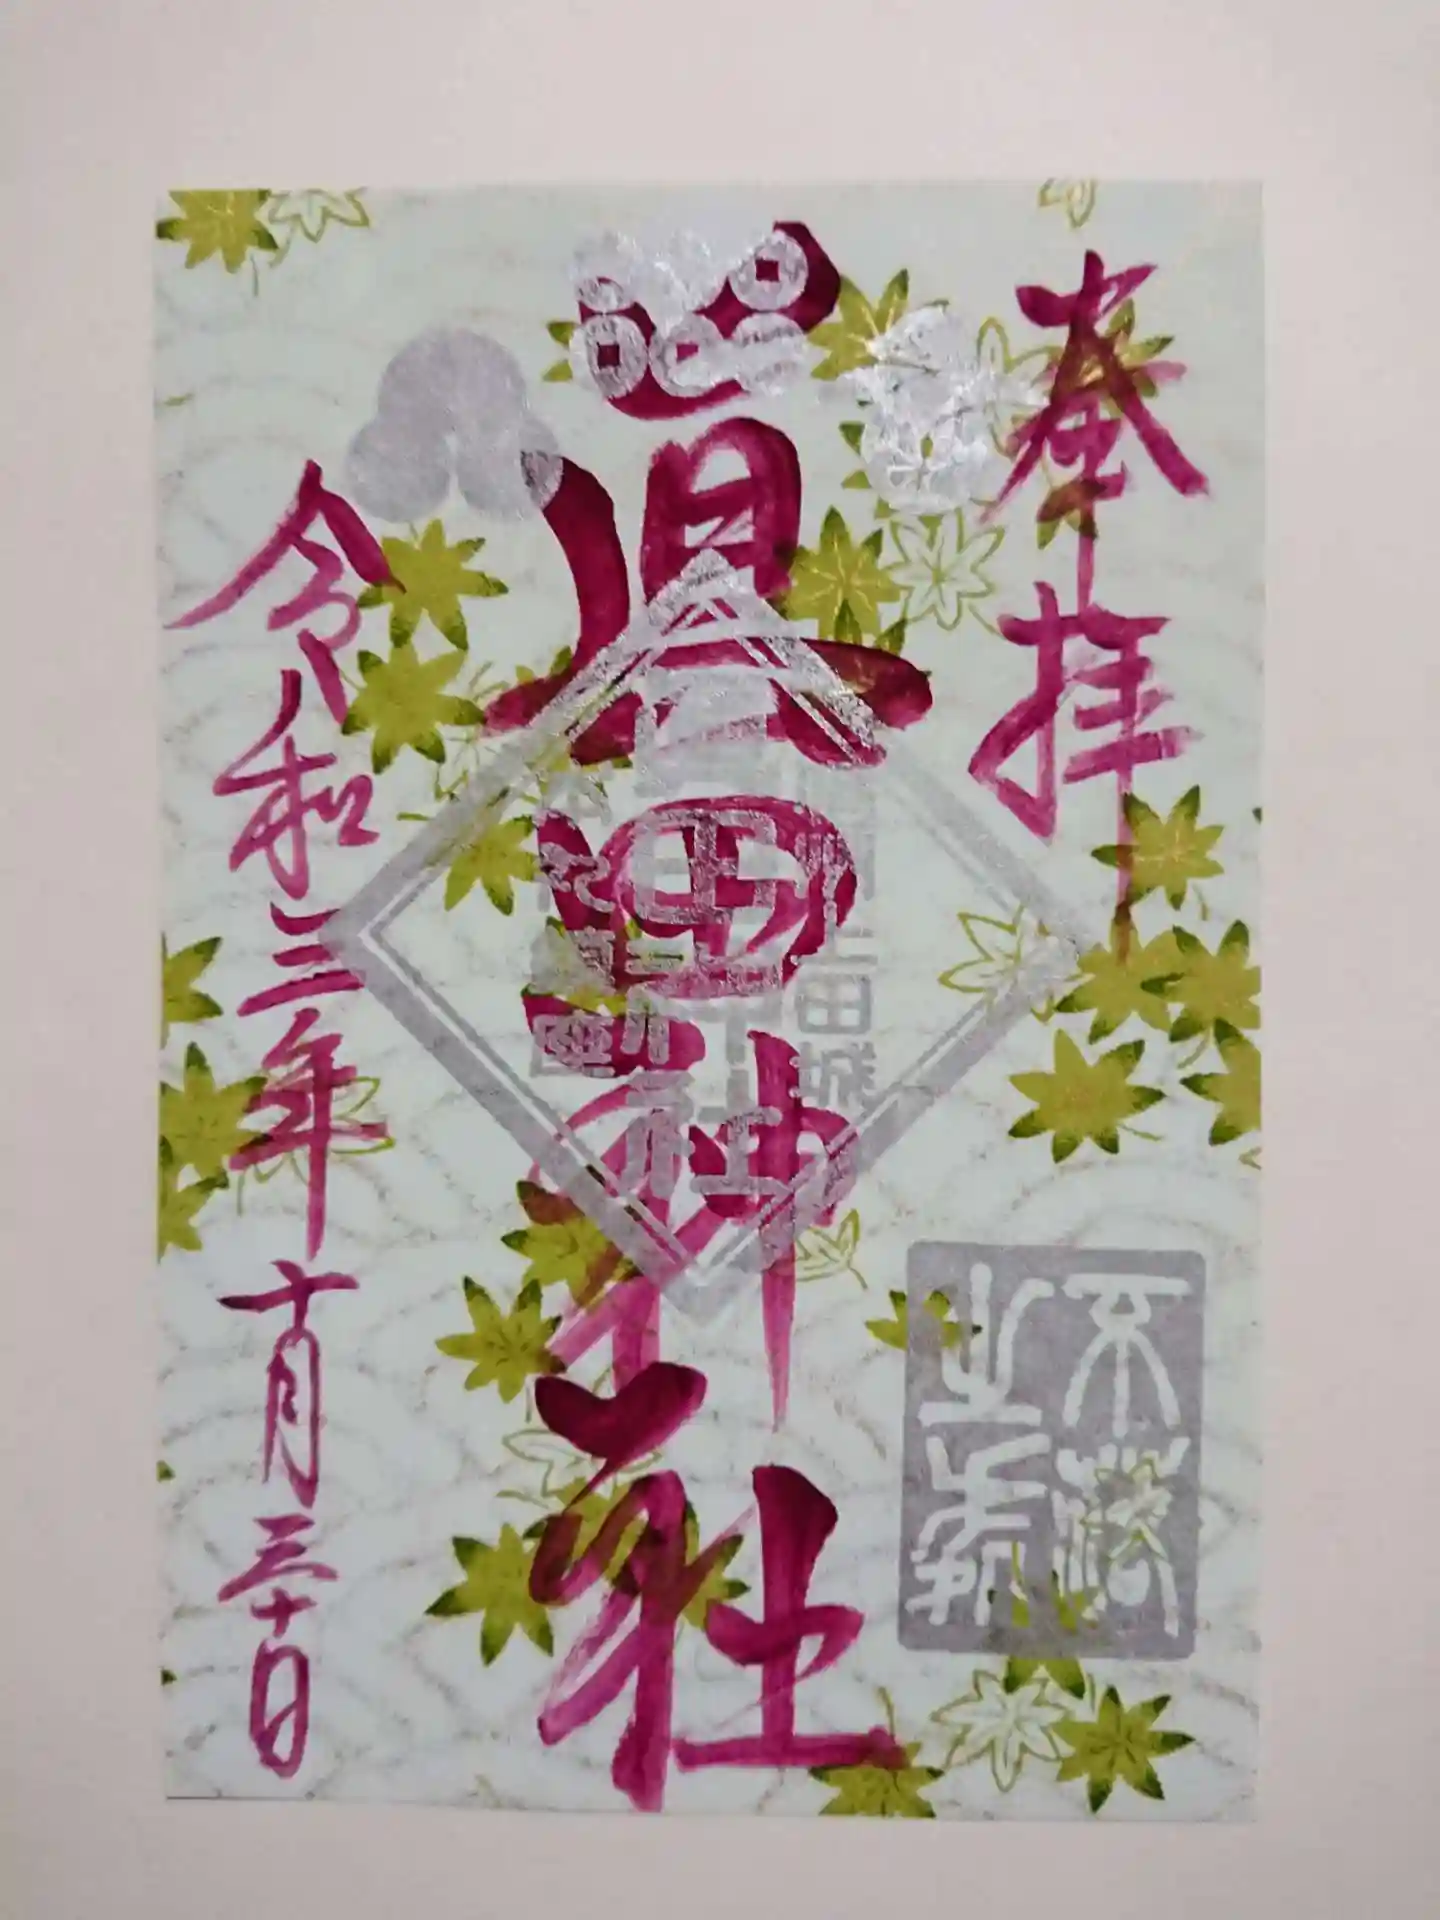 奉拝
眞田神社
信州上田城
眞田神社
不落之砦
令和三年十月三十日